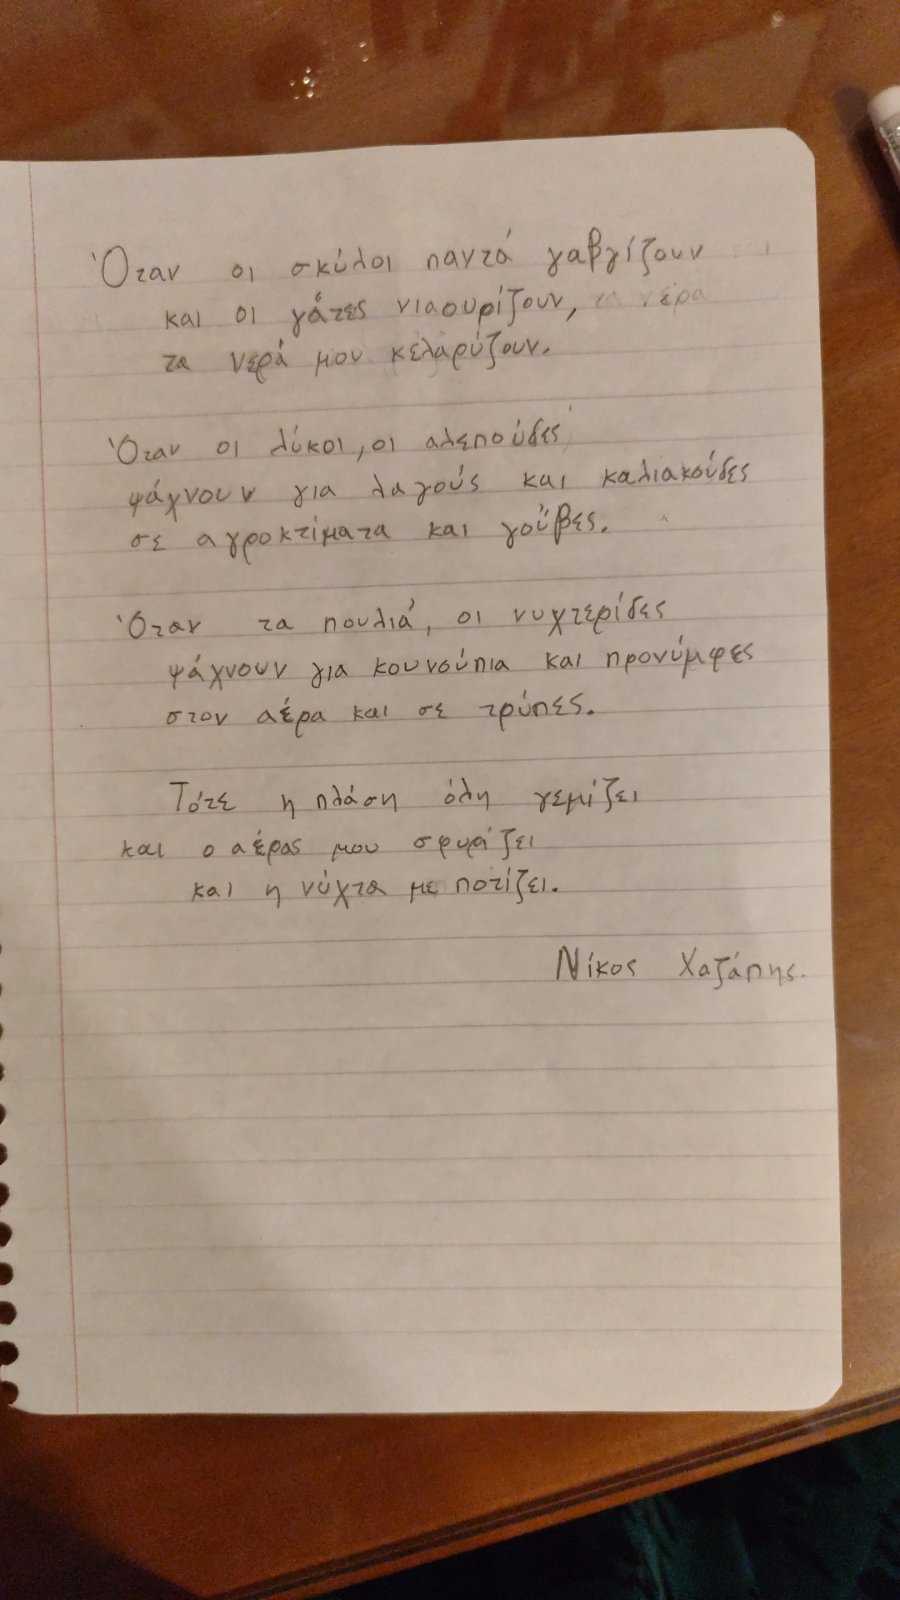 Όταν οι σκύλοι παντά γαβγίζουν
και οι γάτες νιαουρίζουν,
τα νερά μου κελαρύζουν.
Όταν οι λύκοι, οι αλεπούδες
ψάχνουν για λαγούς και καλιακούδες
σε αγροκτίματα και γούβες.
Όταν τα πουλιά, οι νυχτερίδες
ψάχνουν για κουνούπια και προνύμφες
στον αέρα και σε τρύπες.
Τότε η πλάση όλη γεμίζει
και ο αέρας μου σφυρίζει
και η νύχτα με ποτίζει.
Νίκος Χαζάπης.